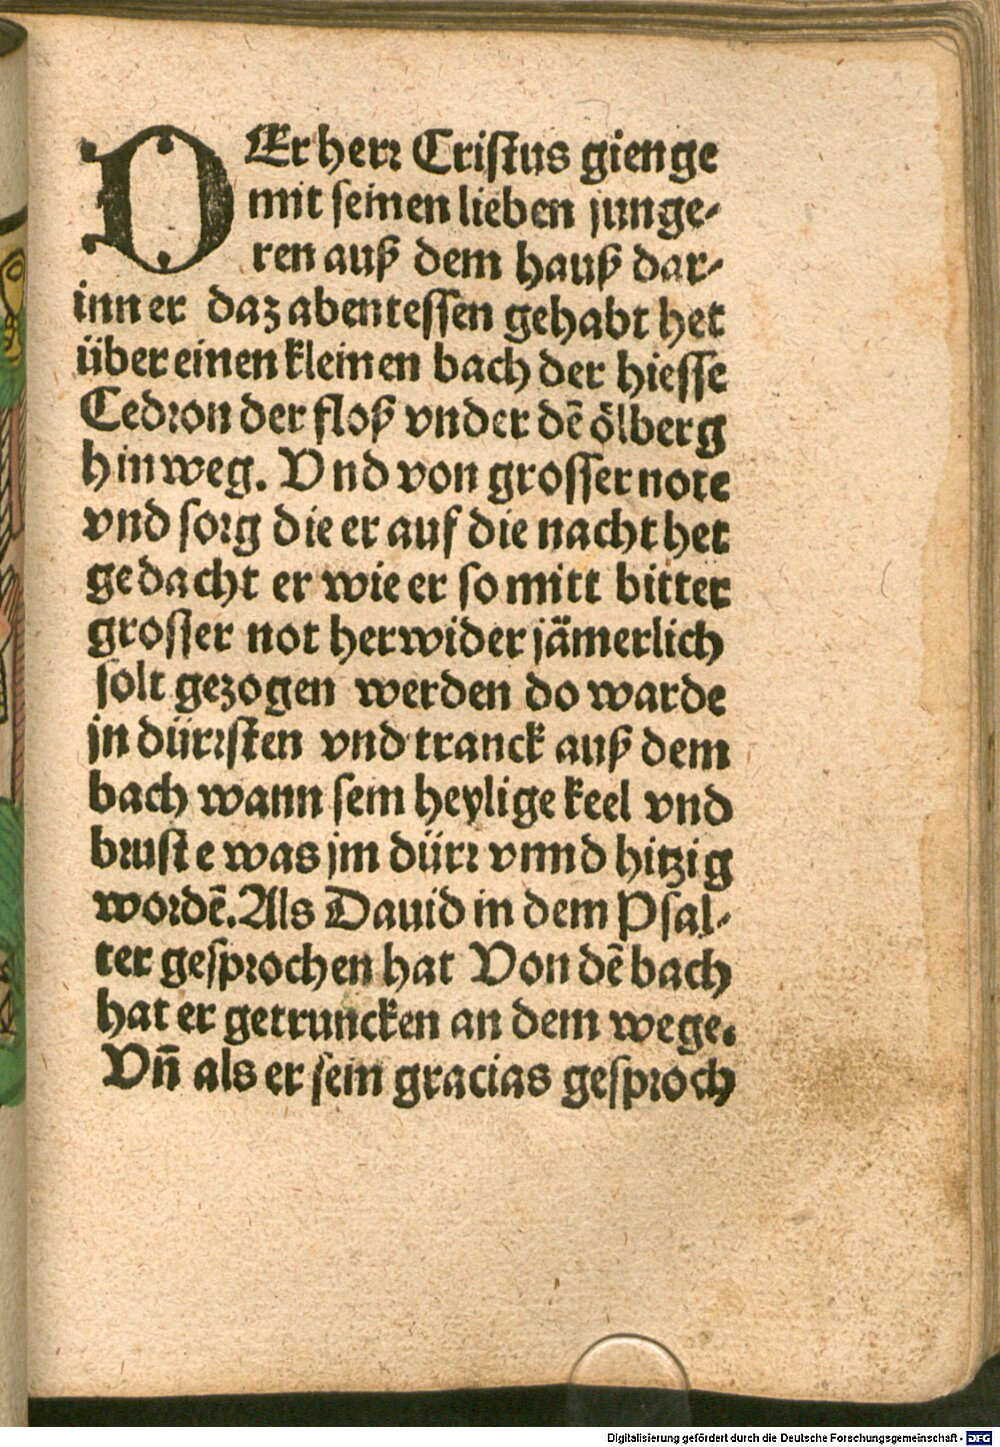 DEr herr Cristus gienge
mit seinen lieben junge-
ren auß dem hauß dar-
inn er daz abentessen gehabt het
über einen kleinen bach der hiesse
Cedron der floß vnder dē ölberg
hinweg. Vnd von grosser note
vnd sorg die er auf die nacht het
gedacht er wie er so mitt bitter
grosser not herwider jämerlich
solt gezogen werden do warde
jn dürrsten vnd tranck auß dem
bach wann sein heylige keel vnd
bruste was jm dürr vnnd hitzig
wordē. Als Dauid in dem Psal-
ter gesprochen hat Von dē bach
hat er getruncken an dem wege.
Vn̄ als er sein gracias gesproch
Digitalisierung gefördert durch die Deutsche Forschungsgemeinschaft - DFG